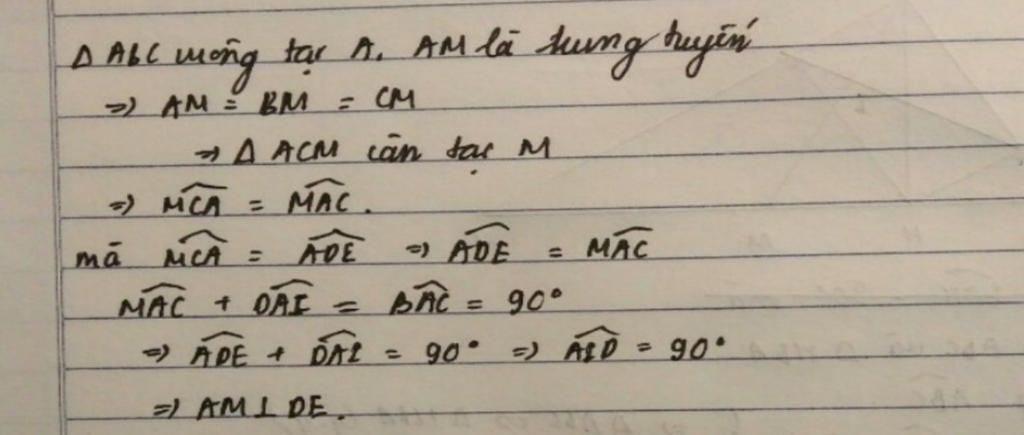 Δ ABC vuông tại A. AM là trung tuyến
=> AM = BM = CM
=> Δ ACM cân tại M
=> \widehat{MCA} = \widehat{MAC}.
mà \widehat{MCA} = \widehat{ADE} => \widehat{ADE} = \widehat{MAC}
\widehat{MAC} + \widehat{DAI} = \widehat{BAC} = 90°
=> \widehat{ADE} + \widehat{DAI} = 90° => \widehat{AID} = 90°
=> AM ⊥ DE.